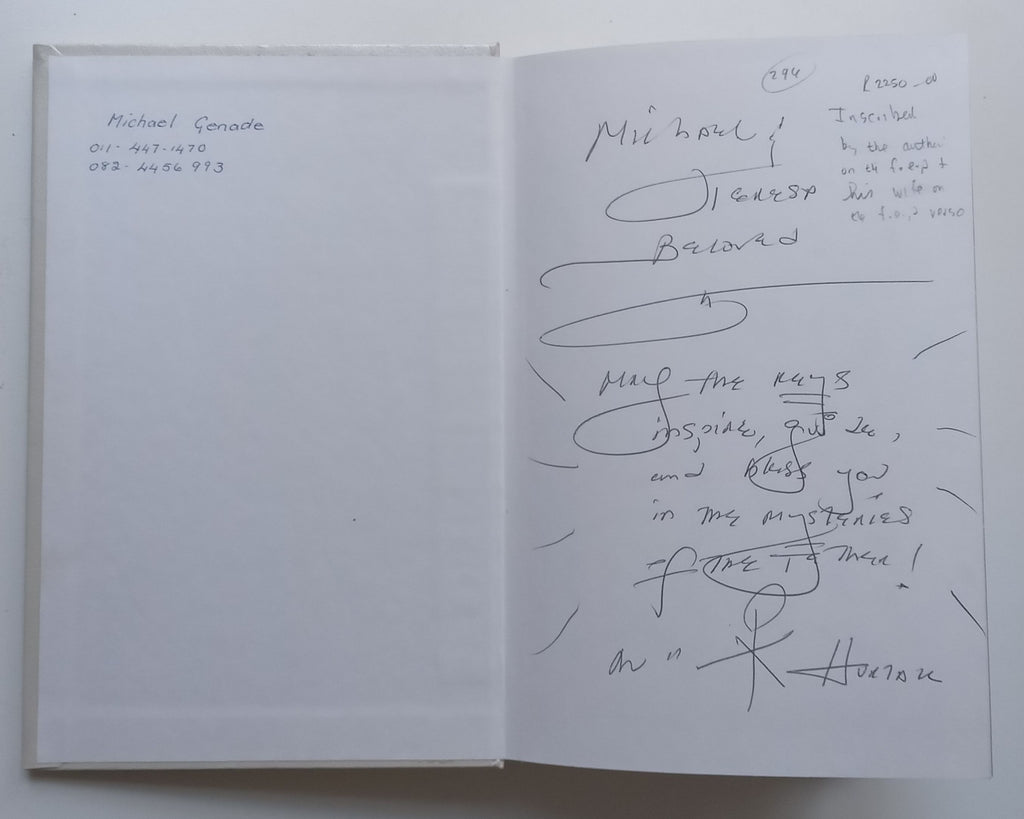 Michael Genade
011-447-1470
082-4456 993
294
R 2250-00
Inscribed
by the author
on the f.e.p &
his wife on
the f.e.p verso
Michael &
Teresa
Beloved
May the Keys
inspire, guide,
and bless you
in the mysteries
of the Father!
Hurtak